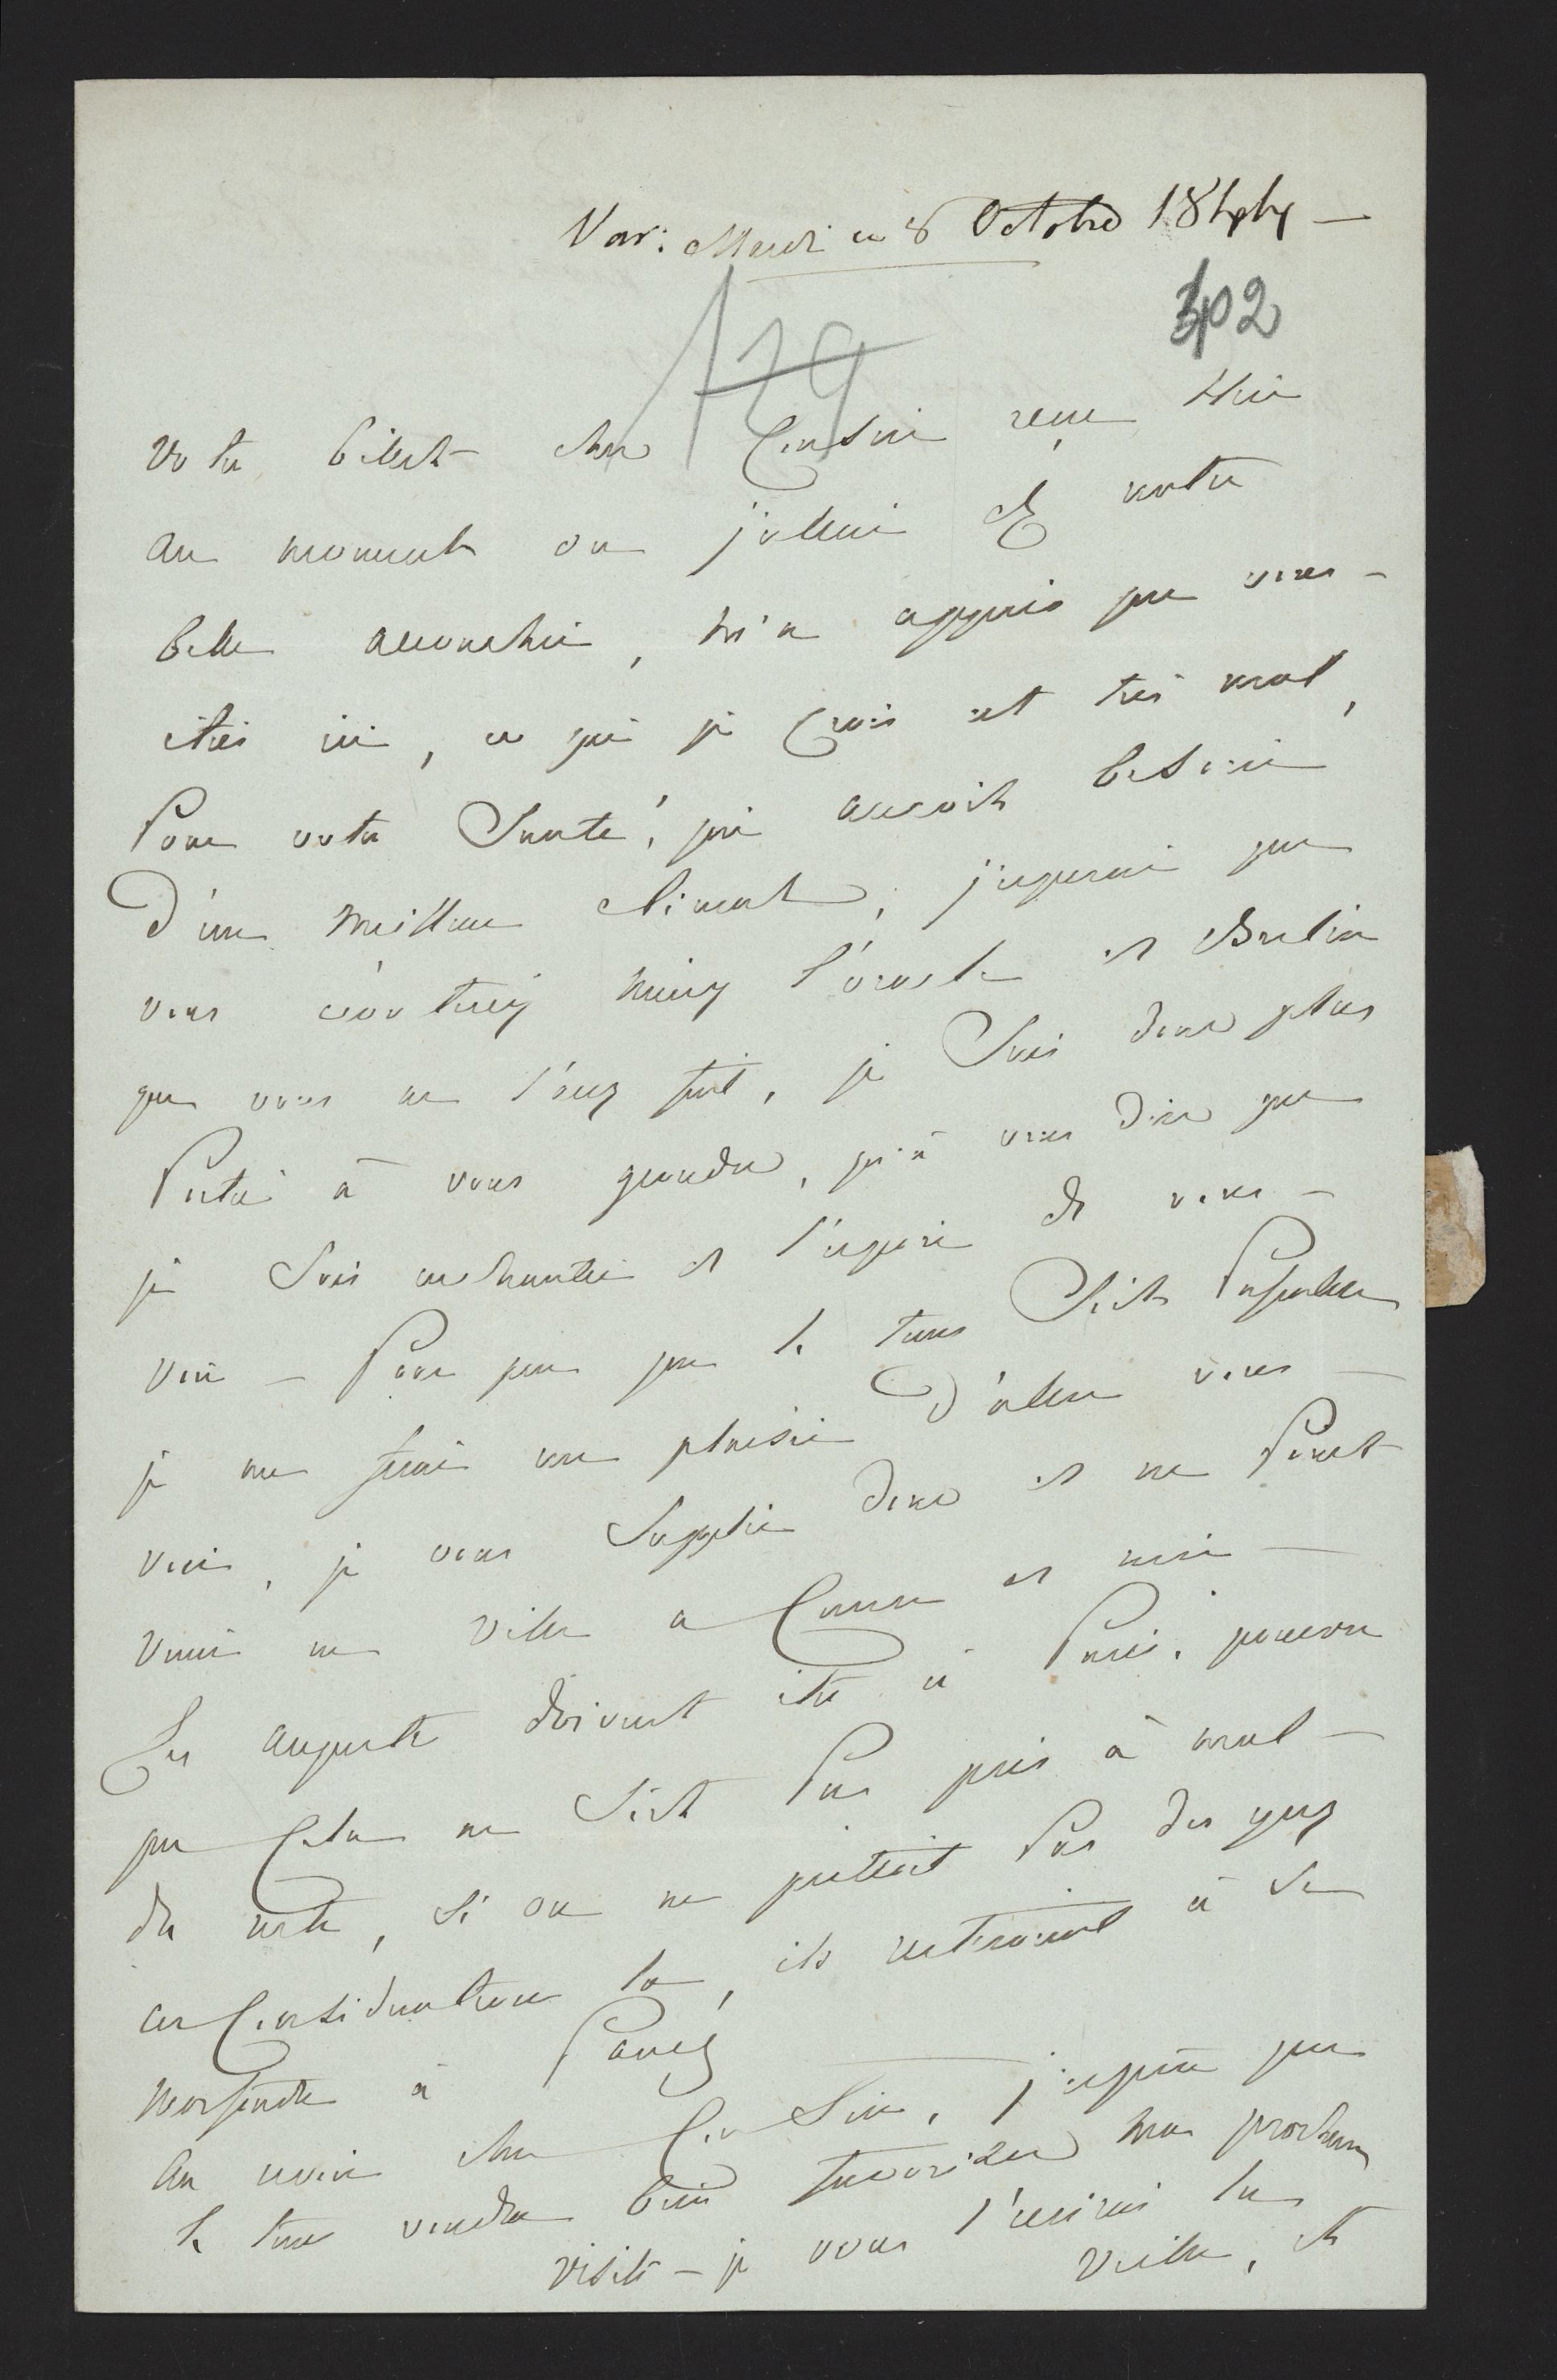 Var: Mardi ce 8 Octobre 1844 —
302
179
Votre billet cher Cousin reçu hier
au moment ou j'allai chez notre
belle accouchée, m'a appris que vous
éties ici, ce que je Crois est très mal,
Pour votre Santé, qui auroit besoin
D'un meilleur climat, j'esperai que
vous écouteriez mieux l'oracle de Berlin
que vous ne l'avez fait, je Suis donc plus
Portée à vous gronder, qu'à vous dire que
je Suis enchantée de l'espoir de vous
voir — Pour peu que le tems Soit Passable
je me ferai un plaisir D'aller vous
voir, je vous Supplie donc de ne Point
venir en ville a Cause de moi —
Les auguste doivent être à Paris, pourvu
que Cela ne Soit Pas pris à mal —
du reste, si on ne prettoit Pas des yeux
ces Considerations la, ils resteroient à Se
morfondre à
Au revoir cher Cousin, j'espère que
le tems voudra bien favoriser ma prochaine
visite — je vous l'ecrirai la
veille, et